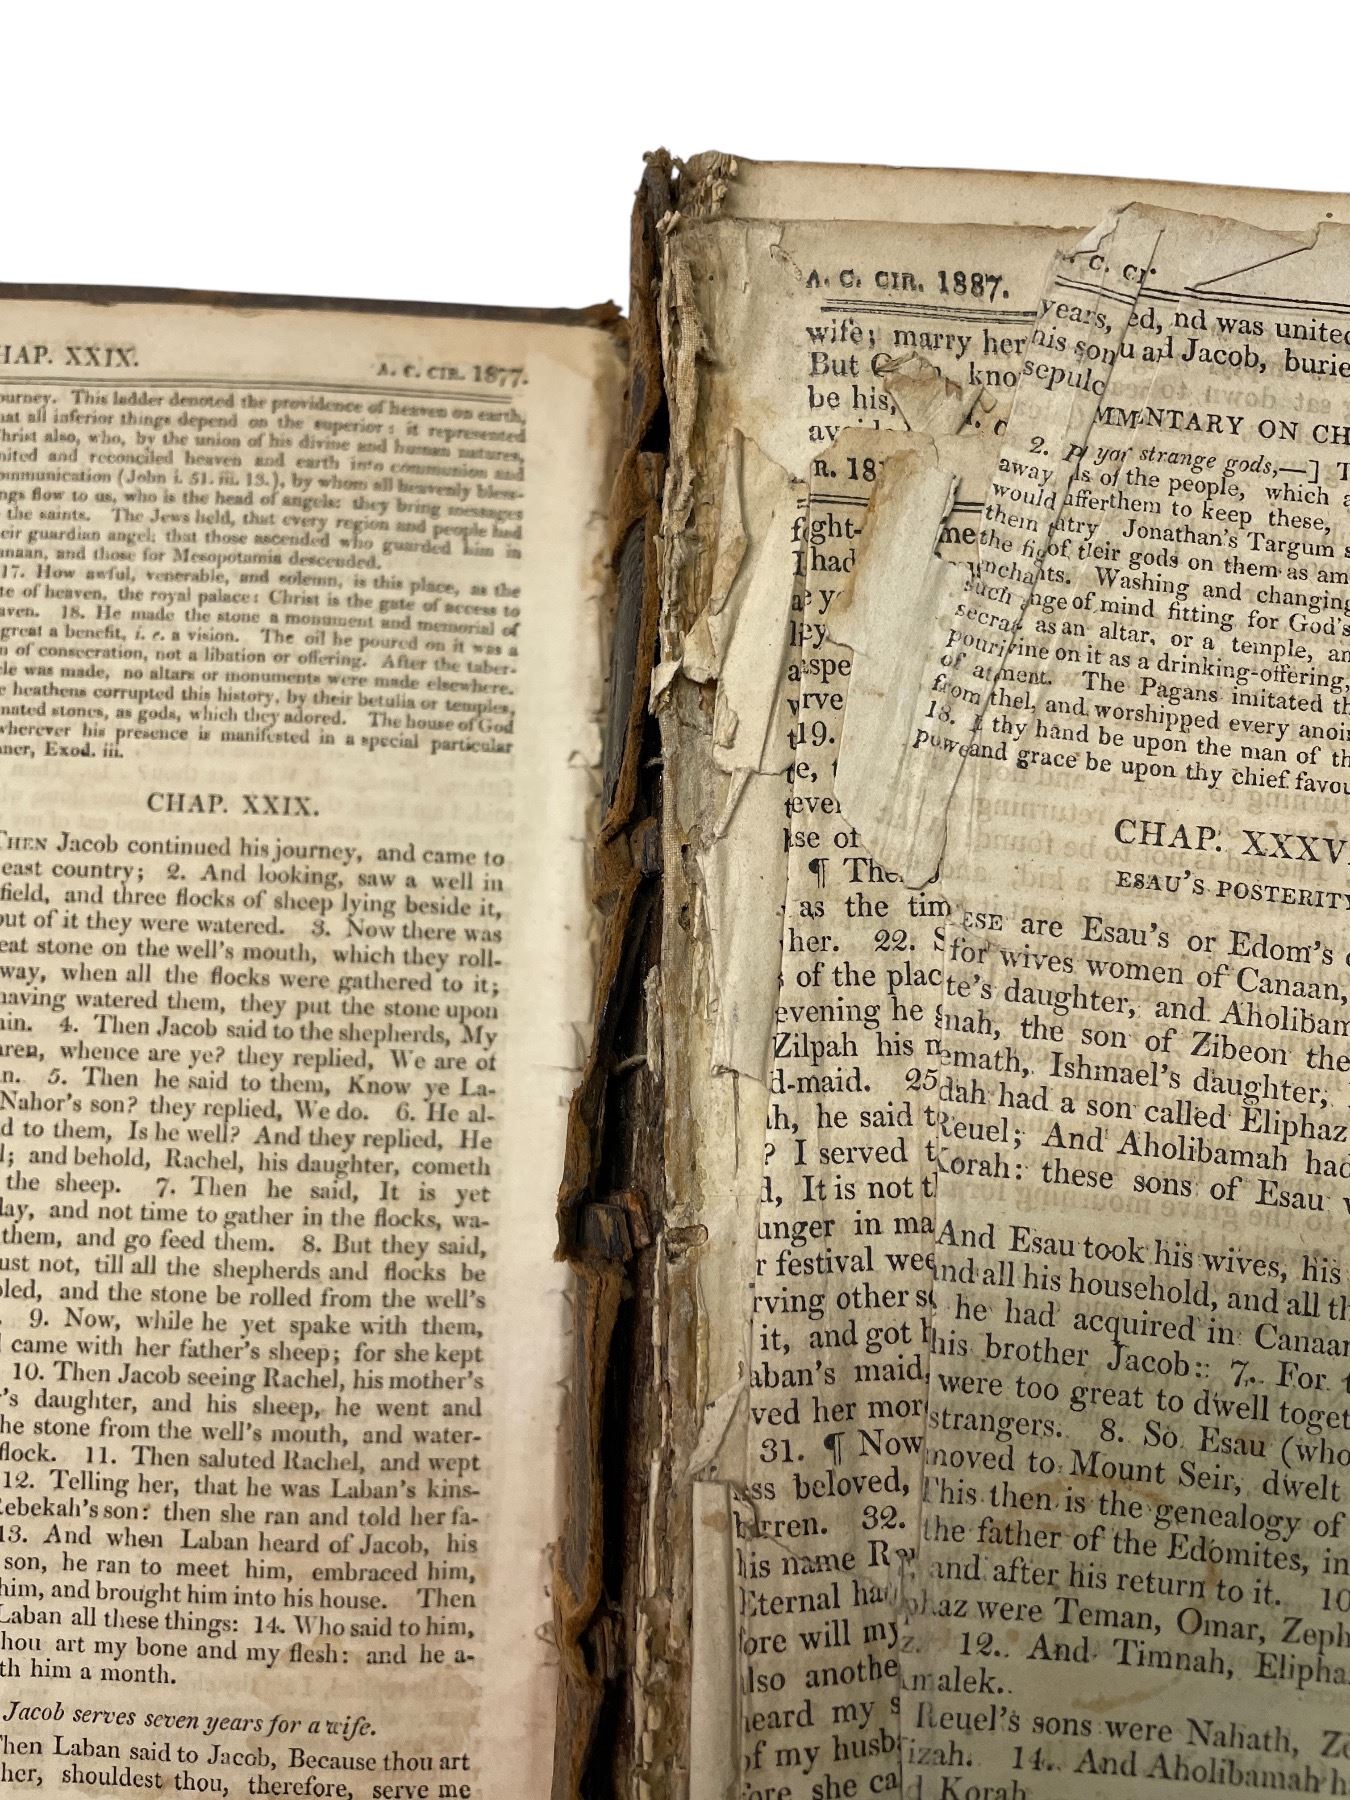 CHAP. XXIX.
A. C. CIR. 1877.
ourney. This ladder denoted the providence of heaven on earth,
hat all inferior things depend on the superior: it represented
Christ also, who, by the union of his divine and human natures,
nited and reconciled heaven and earth into communion and
ommunication (John i. 51. iii. 13.), by whom all heavenly bless-
ngs flow to us, who is the head of angels: they bring messages
the saints. The Jews held, that every region and people had
eir guardian angel; that those ascended who guarded him in
anaan, and those for Mesopotamia descended.
17. How awful, venerable, and solemn, is this place, as the
te of heaven, the royal palace: Christ is the gate of access to
aven. 18. He made the stone a monument and memorial of
great a benefit, i. e. a vision. The oil he poured on it was a
n of consecration, not a libation or offering. After the taber-
cle was made, no altars or monuments were made elsewhere.
e heathens corrupted this history, by their betulia or temples,
nated stones, as gods, which they adored. The house of God
wherever his presence is manifested in a special particular
nner, Exod. iii.
CHAP. XXIX.
THEN Jacob continued his journey, and came to
east country; 2. And looking, saw a well in
field, and three flocks of sheep lying beside it,
out of it they were watered. 3. Now there was
eat stone on the well's mouth, which they roll-
way, when all the flocks were gathered to it;
having watered them, they put the stone upon
ain. 4. Then Jacob said to the shepherds, My
hren, whence are ye? they replied, We are of
n. 5. Then he said to them, Know ye La-
Nahor's son? they replied, We do. 6. He al-
d to them, Is he well? And they replied, He
l; and behold, Rachel, his daughter, cometh
the sheep. 7. Then he said, It is yet
day, and not time to gather in the flocks, wa-
them, and go feed them. 8. But they said,
ust not, till all the shepherds and flocks be
bled, and the stone be rolled from the well's
9. Now, while he yet spake with them,
came with her father's sheep; for she kept
10. Then Jacob seeing Rachel, his mother's
r's daughter, and his sheep, he went and
he stone from the well's mouth, and water-
flock. 11. Then saluted Rachel, and wept
12. Telling her, that he was Laban's kins-
Rebekah's son: then she ran and told her fa-
13. And when Laban heard of Jacob, his
son, he ran to meet him, embraced him,
him, and brought him into his house. Then
Laban all these things: 14. Who said to him,
hou art my bone and my flesh: and he a-
th him a month.
Jacob serves seven years for a wife.
Then Laban said to Jacob, Because thou art
her, shouldest thou, therefore, serve me
A. C. CIR. 1887.
wife; marry her
But
kno
be his,
n. 18
ght-
had
spe
rve
19.
ever
se of
¶ The
as the tim
her. 22. S
of the plac
evening he
Zilpah his
d-maid. 25
ah, he said t
? I served t
d, It is not t
unger in ma
r festival wee
rving other s
it, and got
aban's maid,
ved her mor
31. ¶ Now
ss beloved,
barren. 32.
his name
Eternal ha
fore will my
also anothe
heard my s
of my husb
fore she ca
C. CI
years,
ed, nd was united
his son
ad Jacob, burie
sepulc
MMENTARY ON CH
2.
your strange gods,—] T
away
ls of the people, which
would
them to keep these,
them
atry Jonathan's Targum
the fig
of their gods on them as am
nchants. Washing and changing
such
nge of mind fitting for God's
secra
as an altar, or a temple, an
pouri
ine on it as a drinking-offering,
of at
ment. The Pagans imitated th
from
thel, and worshipped every anoin
18.
thy hand be upon the man of th
powe
and grace be upon thy chief favou
CHAP. XXXV
ESAU'S POSTERITY
ESE are Esau's or Edom's
for wives women of Canaan,
te's daughter, and Aholibam
nah, the son of Zibeon the
emath, Ishmael's daughter,
dah had a son called Eliphaz
Reuel; And Aholibamah had
Korah: these sons of Esau
And Esau took his wives, his
and all his household, and all th
he had acquired in Canaan
his brother Jacob: 7. For
were too great to dwell toget
strangers. 8. So Esau (who
moved to Mount Seir, dwelt
This then is the genealogy of
the father of the Edomites, in
and after his return to it. 10
phaz were Teman, Omar, Zeph
z. 12. And Timnah, Elipha
malek.
Reuel's sons were Nahath, Z
izah. 14. And Aholibamah h
d Korah